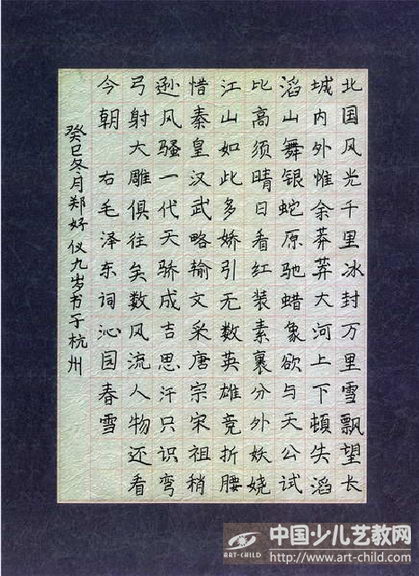 北国风光千里冰封万里雪飘望长
城内外惟余莽莽大河上下頓失滔
滔山舞银蛇原驰蜡象欲与天公试
比高须晴日看红装素裹分外妖娆
江山如此多娇引无数英雄竞折腰
惜秦皇汉武略输文采唐宗宋祖稍
逊风骚一代天骄成吉思汗只识弯
弓射大雕俱往矣数风流人物还看
今朝 右毛泽东词沁园春雪
癸巳冬月郑好仪九岁书于杭州
ART-CHILD
中国少儿艺教网
http://www.art-child.com